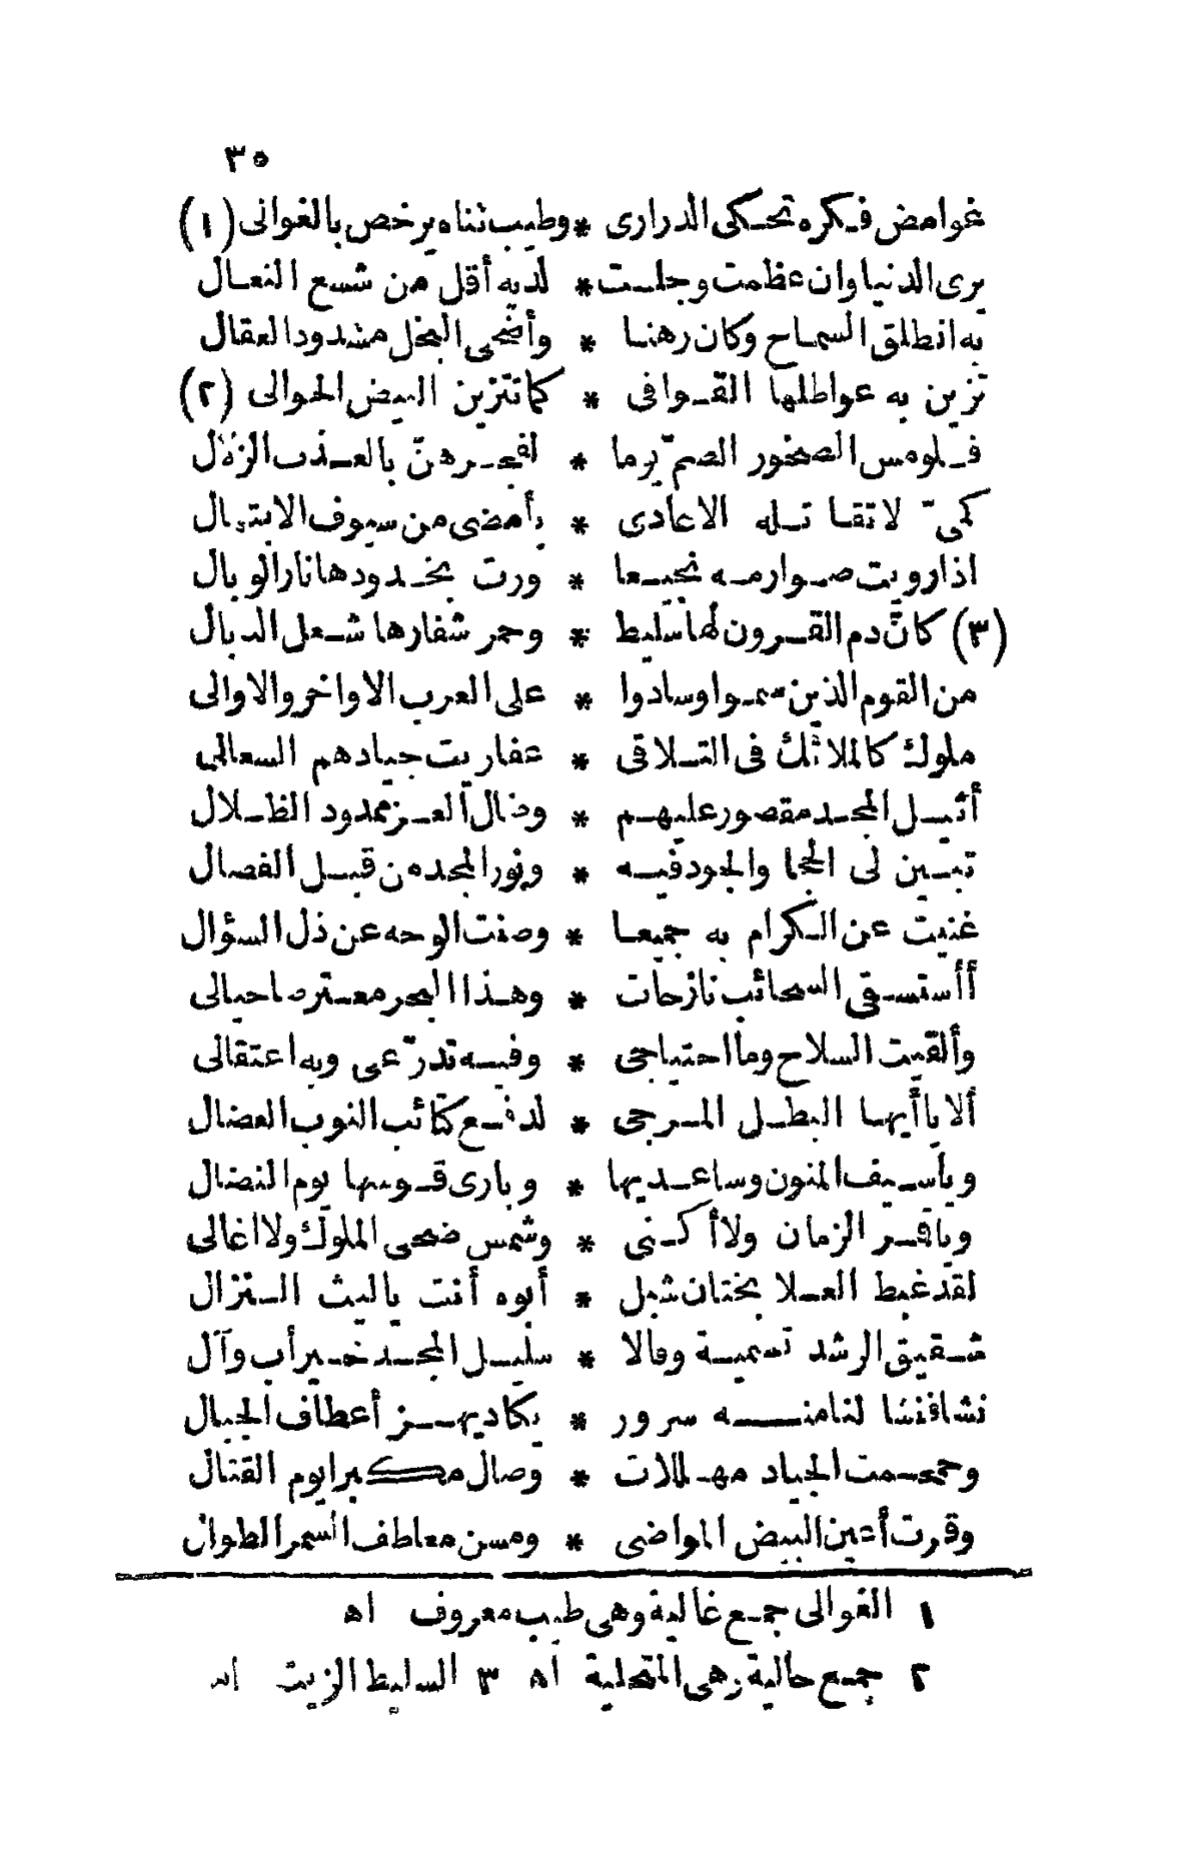 ٣٥
غوامض فكره تحكى الدرارى * وطيب ثناه يرخص بالغوانى (١)
يرى الدنيا وان عظمت وجلت * لديه أقل من شسع النعال
به انطلق السماح وكان رهنا * وأضحى البخل مشدود العقال
تزين به عواطلها القوافى * كما تتزين البيض الحوالى (٢)
فلو مس الصخور الصم يوما * لفجرهنّ بالعذب الزلال
كمىّ لا تقاتله الاعادى * بأمضى من سيوف الابتهال
اذا رويت صوارمه نجيعا * ورت بخدودها نار الوبال
(٣) كانّ دم القرون لها سليط * وحمر شفارها شعل الذبال
من القوم الذين سموا وسادوا * على العرب الاواخر والاوالى
ملوك كالملائك فى التلاقى * عفاريت جيادهم السعالى
أثيل المجد مقصور عليهم * وضال العز ممدود الظلال
تبين لى الحجا والجود فيه * ونور المجد من قبل الفصال
غنيت عن الكرام به جميعا * وصنت الوجه عن ذل السؤال
أأستسقى السحائب نازحات * وهذا البحر معترضا حيالى
وألقيت السلاح وما احتياجى * وفيه تدرّعى وبه اعتقالى
ألا يا أيها البطل المرجى * لدفع كتائب النوب العضال
ويا سيف المنون وساعديها * وبارى قوسها يوم النضال
ويا قمر الزمان ولا أكنى * وشمس ضحى الملوك ولا اغالى
لقد غبط العلا بختان شبل * أبوه أنت يا ليث النزال
شقيق الرشد تسمية وفالا * سليل المجد خير أب وآل
نشا فنشا لنا منه سرور * يكاد يهز أعطاف الجبال
وحمحمت الجياد مهللات * وصال مكبرا يوم القتال
وقرت أعين البيض المواضى * ومسن معاطف السمر الطوال
١ الغوالى جمع غالية وهى طيب معروف اه
٢ جمع حالية وهى المتحلية اه ٣ السليط الزيت اه